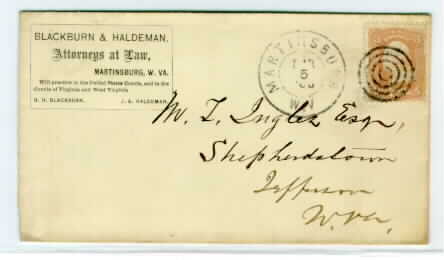 BLACKBURN & HALDEMAN,
Attorneys at Law,
MARTINSBURG, W. VA.
Will practice in the United States Courts, and in the
Courts of Virginia and West Virginia.
BLACKBURN. J. A. HALDEMAN.
MARTINSBURG
5
W.
Esqr,
Shepherdstown
Jefferson
W. Va,